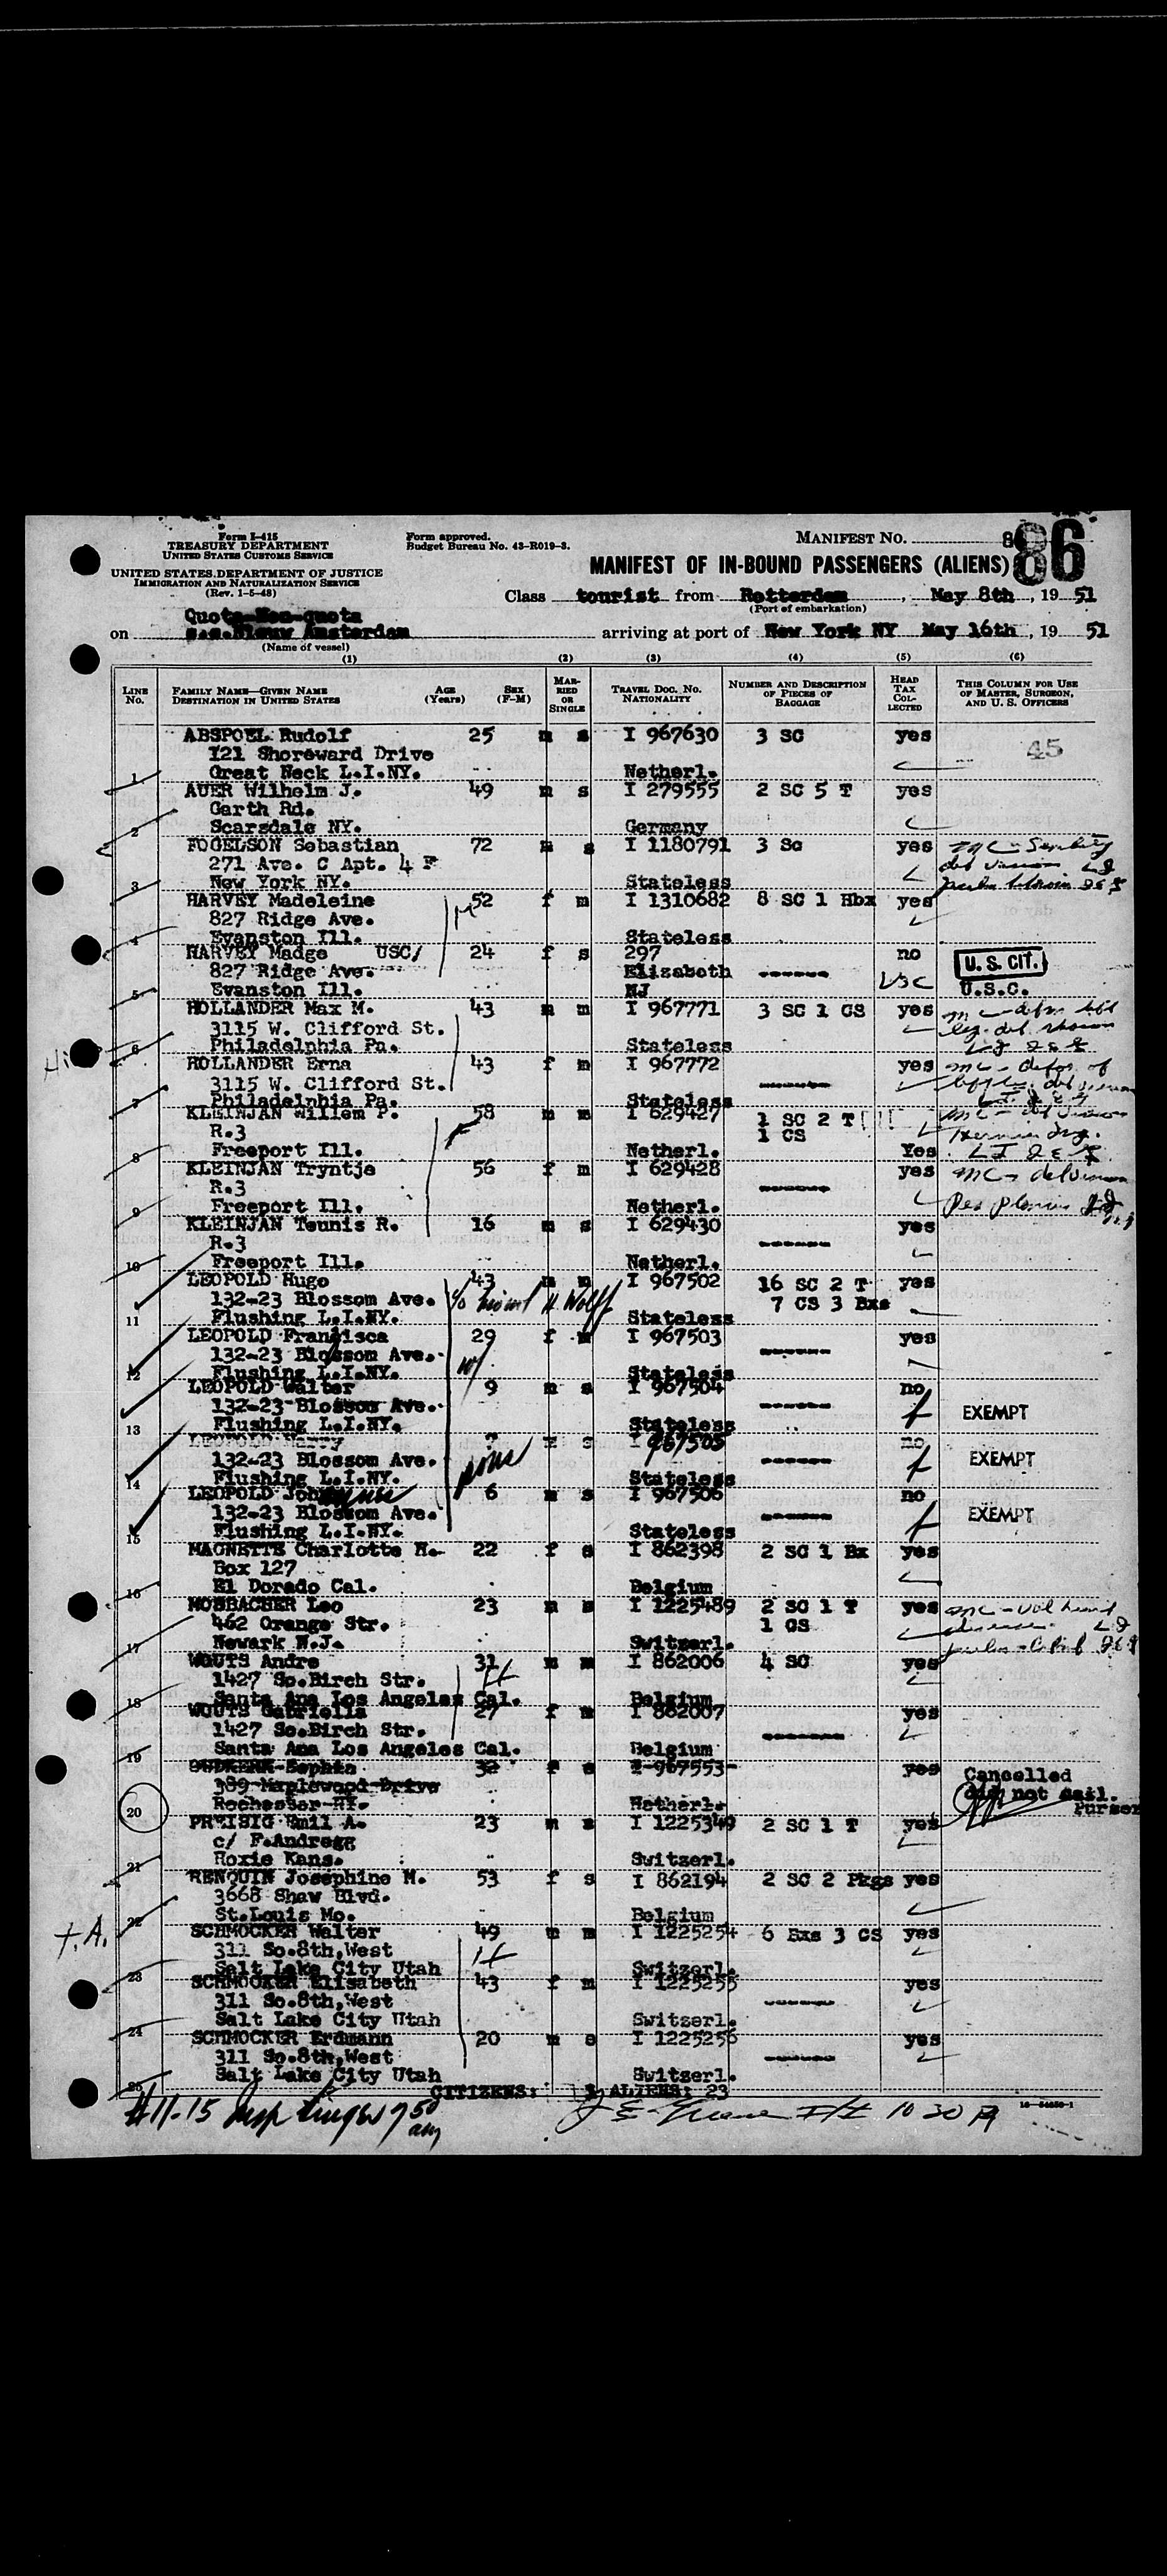 Form I-415
TREASURY DEPARTMENT
UNITED STATES CUSTOMS SERVICE
UNITED STATES DEPARTMENT OF JUSTICE
IMMIGRATION AND NATURALIZATION SERVICE
(Rev. 1-5-48)
Form approved.
Budget Bureau No. 43-R019-3.
MANIFEST NO. 8
86
MANIFEST OF IN-BOUND PASSENGERS (ALIENS)
Class tourist from Rotterdam, May 8th, 1951
(Port of embarkation)
Quota-Non-quota
on s.s.Nieuw Amsterdam arriving at port of New York NY May 16th, 1951
(Name of vessel)
(1) (2) (3) (4) (5) (6)
LINE No. FAMILY NAME—GIVEN NAME DESTINATION IN UNITED STATES AGE (Years) SEX (F-M) MARRIED OR SINGLE TRAVEL DOC. NO. NATIONALITY NUMBER AND DESCRIPTION OF PIECES OF BAGGAGE HEAD TAX COLLECTED THIS COLUMN FOR USE OF MASTER, SURGEON, AND U. S. OFFICERS
ABSPOEL Rudolf 25 m s I 967630 3 SC yes
121 Shoreward Drive 45
1 Great Neck L.I.NY. Netherl.
AUER Wilhelm J. 49 m s I 279555 2 SC 5 T yes
Garth Rd.
2 Scarsdale NY. Germany
FOGELSON Sebastian 72 m s I 1180791 3 SC yes
271 Ave. C Apt. 4 F
3 New York NY. Stateless
HARVEY Madeleine 52 f m I 1310682 8 SC 1 Hbx yes
827 Ridge Ave.
4 Evanston Ill. Stateless
HARVEY Madge USC/ 24 f s 297 no U. S. CIT.
827 Ridge Ave. Elizabeth USC
5 Evanston Ill. NJ U.S.C.
HOLLANDER Max M. 43 m m I 967771 3 SC 1 CS yes
3115 W. Clifford St.
6 Philadelphia Pa. Stateless
HOLLANDER Erna 43 f m I 967772 yes
3115 W. Clifford St.
7 Philadelphia Pa. Stateless
KLEINJAN Willem P. 58 m m I 629427 1 SC 2 T
R.3 1 CS
8 Freeport Ill. Netherl. Yes
KLEINJAN Tryntje 56 f m I 629428 yes
R.3
9 Freeport Ill. Netherl.
KLEINJAN Teunis R. 16 m s I 629430 yes
R.3
10 Freeport Ill. Netherl.
LEOPOLD Hugo 43 m m I 967502 16 SC 2 T yes
132-23 Blossom Ave. c/o H. Wolff 7 CS 3 Bxs
11 Flushing L.I.NY. Stateless
LEOPOLD Franzisca 29 f m I 967503 yes
132-23 Blossom Ave. w/
12 Flushing L.I.NY. Stateless
LEOPOLD Walter 9 m s I 967504 no
132-23 Blossom Ave. EXEMPT
13 Flushing L.I.NY. Stateless
LEOPOLD Harry 7 m s I 967505 no
132-23 Blossom Ave. sons EXEMPT
14 Flushing L.I.NY. Stateless
LEOPOLD 6 m s I 967506 no
132-23 Blossom Ave. EXEMPT
15 Flushing L.I.NY. Stateless
MAGNETTE Charlotte H. 22 f s I 862398 2 SC 1 Bx yes
Box 127
16 El Dorado Cal. Belgium
MOSBACHER Leo 23 m s I 1225489 2 SC 1 T yes
462 Orange Str. 1 CS
17 Newark N.J. Switzerl.
WOUTS Andre 31 m m I 862006 4 SC yes
1427 So.Birch Str.
18 Santa Ana Los Angeles Cal. Belgium
WOUTS Gabriella 27 f m I 862007 yes
1427 So.Birch Str.
19 Santa Ana Los Angeles Cal. Belgium
OUDKERK Sophia 32 f s I 967553 yes Cancelled
389 Maplewood Drive did not sail.
20 Rochester NY. Netherl. Purser
PREISIG Emil A. 23 m s I 1225349 2 SC 1 T yes
c/ F.Andregg
21 Hoxie Kans. Switzerl.
RENQUIN Josephine M. 53 f s I 862194 2 SC 2 Pkgs yes
3668 Shaw Blvd.
22 St.Louis Mo. Belgium
SCHMOCKER Walter 49 m m I 1225254 6 Bxs 3 CS yes
311 So.8th,West
23 Salt Lake City Utah Switzerl.
SCHMOCKER Elisabeth 43 f m I 1225255 yes
311 So.8th,West
24 Salt Lake City Utah Switzerl.
SCHMOCKER Erdmann 20 m s I 1225256 yes
311 So.8th,West
25 Salt Lake City Utah Switzerl.
CITIZENS: 1 ALIENS: 23
#11-15 Insp 7 50 am 10 30 A